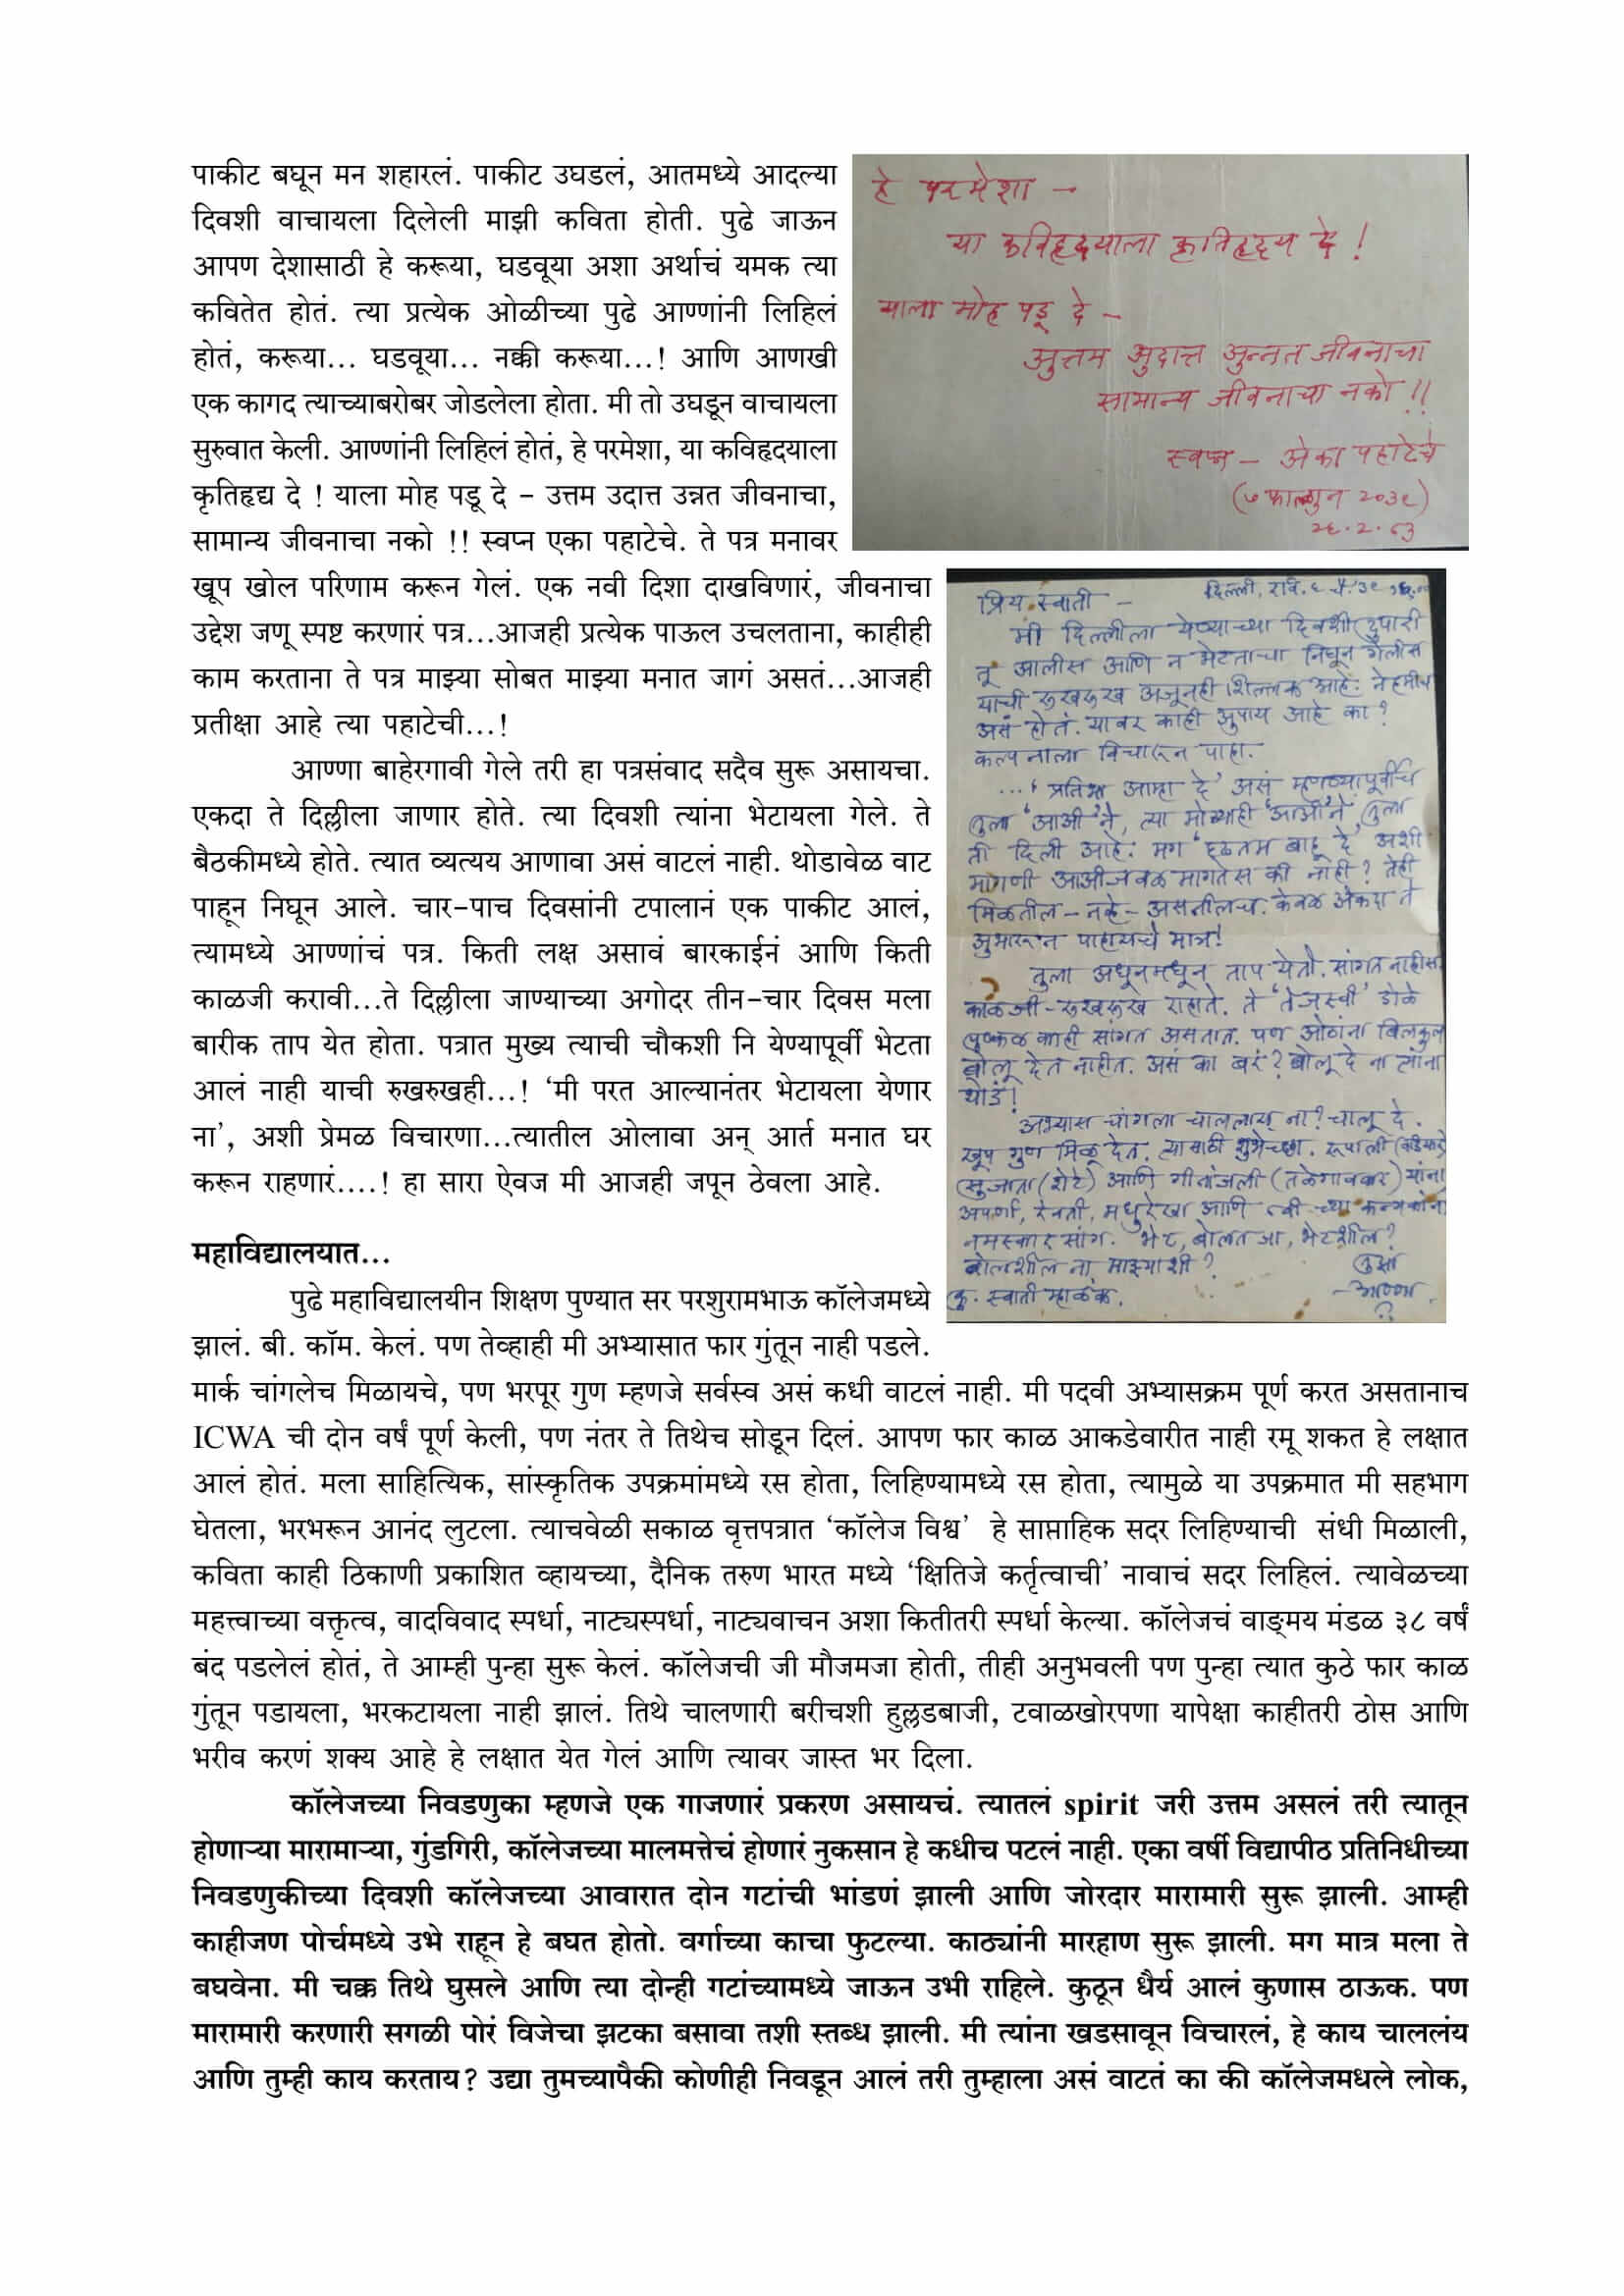 पाकीट बघून मन शहारलं. पाकीट उघडलं, आतमध्ये आदल्या
दिवशी वाचायला दिलेली माझी कविता होती. पुढे जाऊन
आपण देशासाठी हे करूया, घडवूया अशा अर्थाचं यमक त्या
कवितेत होतं. त्या प्रत्येक ओळीच्या पुढे आण्णांनी लिहिलं
होतं, करूया... घडवूया... नक्की करूया...! आणि आणखी
एक कागद त्याच्याबरोबर जोडलेला होता. मी तो उघडून वाचायला
सुरुवात केली. आण्णांनी लिहिलं होतं, हे परमेशा, या कविहृदयाला
कृतिहृद्य दे ! याला मोह पडू दे – उत्तम उदात्त उन्नत जीवनाचा,
सामान्य जीवनाचा नको !! स्वप्न एका पहाटेचे. ते पत्र मनावर
खूप खोल परिणाम करून गेलं. एक नवी दिशा दाखविणारं, जीवनाचा
उद्देश जणू स्पष्ट करणारं पत्र...आजही प्रत्येक पाऊल उचलताना, काहीही
काम करताना ते पत्र माझ्या सोबत माझ्या मनात जागं असतं...आजही
प्रतीक्षा आहे त्या पहाटेची...!
हे परमेशा –
या कविहृदयाला कृतिहृदय दे !
याला मोह पडू दे –
अुत्तम अुदात्त अुन्नत जीवनाचा
सामान्य जीवनाचा नको !!
स्वप्न – अेका पहाटेचे
(७ फाल्गुन २०३९)
२६.२.८३
आण्णा बाहेरगावी गेले तरी हा पत्रसंवाद सदैव सुरू असायचा.
एकदा ते दिल्लीला जाणार होते. त्या दिवशी त्यांना भेटायला गेले. ते
बैठकीमध्ये होते. त्यात व्यत्यय आणावा असं वाटलं नाही. थोडावेळ वाट
पाहून निघून आले. चार-पाच दिवसांनी टपालानं एक पाकीट आलं,
त्यामध्ये आण्णांचं पत्र. किती लक्ष असावं बारकाईनं आणि किती
काळजी करावी...ते दिल्लीला जाण्याच्या अगोदर तीन-चार दिवस मला
बारीक ताप येत होता. पत्रात मुख्य त्याची चौकशी नि येण्यापूर्वी भेटता
आलं नाही याची रुखरुखही...! ‘मी परत आल्यानंतर भेटायला येणार
ना’, अशी प्रेमळ विचारणा...त्यातील ओलावा अन् आर्त मनात घर
करून राहणारं....! हा सारा ऐवज मी आजही जपून ठेवला आहे.
प्रिय स्वाती – दिल्ली, रवि.
मी दिल्लीला येण्याच्या दिवशी दुपारी
तू आलीस आणि न भेटताचा निघून गेलीस
याची रुखरुख अजूनही शिल्लक आहे. नेहमीच
असं होतं. यावर काही अुपाय आहे का?
कल्पनाला विचारून पाहा.
...‘प्रतिभा आम्हा दे’ असं म्हणण्यापूर्वीच
तुला ‘आओ’ने, त्या मोठ्याही ‘आओ’ने तुला
ती दिली आहे. मग ‘दृढतम बाहू दे’ अशी
मागणी आओजवळ मागतेस की नाही? तेही
मिळतील – नव्हे – असतीलच. केवळ अेकदा ते
अुभारून पाहायचे मात्र!
तुला अधूनमधून ताप येतो. सांगत नाहीस.
काळजी – रुखरुख राहाते. ते ‘तेजस्वी’ डोळे
पुष्कळ काही सांगत असतात. पण ओठांना बिलकुल
बोलू देत नाहीत. असं का बरं? बोलू दे ना त्यांना
थोडं!
अभ्यास चांगला चाललाय् ना? चालू दे.
खूप गुण मिळू देत. त्यासाठी शुभेच्छा. रूपाली
सुजाता (शेटे) आणि गीतांजली (तळेगावकर) यांना
अपर्णा, रेवती, मधुरेखा आणि च्या कन्यकांना
नमस्कार सांग. भेट, बोलत जा, भेटशील?
बोलशील ना माझ्याशी? तुझा
कु. स्वाती म्हाळंक. – आण्णा.
महाविद्यालयात...
पुढे महाविद्यालयीन शिक्षण पुण्यात सर परशुरामभाऊ कॉलेजमध्ये
झालं. बी. कॉम. केलं. पण तेव्हाही मी अभ्यासात फार गुंतून नाही पडले.
मार्क चांगलेच मिळायचे, पण भरपूर गुण म्हणजे सर्वस्व असं कधी वाटलं नाही. मी पदवी अभ्यासक्रम पूर्ण करत असतानाच
ICWA ची दोन वर्षं पूर्ण केली, पण नंतर ते तिथेच सोडून दिलं. आपण फार काळ आकडेवारीत नाही रमू शकत हे लक्षात
आलं होतं. मला साहित्यिक, सांस्कृतिक उपक्रमांमध्ये रस होता, लिहिण्यामध्ये रस होता, त्यामुळे या उपक्रमात मी सहभाग
घेतला, भरभरून आनंद लुटला. त्याचवेळी सकाळ वृत्तपत्रात ‘कॉलेज विश्व’ हे साप्ताहिक सदर लिहिण्याची संधी मिळाली,
कविता काही ठिकाणी प्रकाशित व्हायच्या, दैनिक तरुण भारत मध्ये ‘क्षितिजे कर्तृत्वाची’ नावाचं सदर लिहिलं. त्यावेळच्या
महत्त्वाच्या वक्तृत्व, वादविवाद स्पर्धा, नाट्यस्पर्धा, नाट्यवाचन अशा कितीतरी स्पर्धा केल्या. कॉलेजचं वाङ्मय मंडळ ३८ वर्षं
बंद पडलेलं होतं, ते आम्ही पुन्हा सुरू केलं. कॉलेजची जी मौजमजा होती, तीही अनुभवली पण पुन्हा त्यात कुठे फार काळ
गुंतून पडायला, भरकटायला नाही झालं. तिथे चालणारी बरीचशी हुल्लडबाजी, टवाळखोरपणा यापेक्षा काहीतरी ठोस आणि
भरीव करणं शक्य आहे हे लक्षात येत गेलं आणि त्यावर जास्त भर दिला.
कॉलेजच्या निवडणुका म्हणजे एक गाजणारं प्रकरण असायचं. त्यातलं spirit जरी उत्तम असलं तरी त्यातून
होणाऱ्या मारामाऱ्या, गुंडगिरी, कॉलेजच्या मालमत्तेचं होणारं नुकसान हे कधीच पटलं नाही. एका वर्षी विद्यापीठ प्रतिनिधीच्या
निवडणुकीच्या दिवशी कॉलेजच्या आवारात दोन गटांची भांडणं झाली आणि जोरदार मारामारी सुरू झाली. आम्ही
काहीजण पोर्चमध्ये उभे राहून हे बघत होतो. वर्गाच्या काचा फुटल्या. काठ्यांनी मारहाण सुरू झाली. मग मात्र मला ते
बघवेना. मी चक्क तिथे घुसले आणि त्या दोन्ही गटांच्यामध्ये जाऊन उभी राहिले. कुठून धैर्य आलं कुणास ठाऊक. पण
मारामारी करणारी सगळी पोरं विजेचा झटका बसावा तशी स्तब्ध झाली. मी त्यांना खडसावून विचारलं, हे काय चाललंय
आणि तुम्ही काय करताय? उद्या तुमच्यापैकी कोणीही निवडून आलं तरी तुम्हाला असं वाटतं का की कॉलेजमधले लोक,